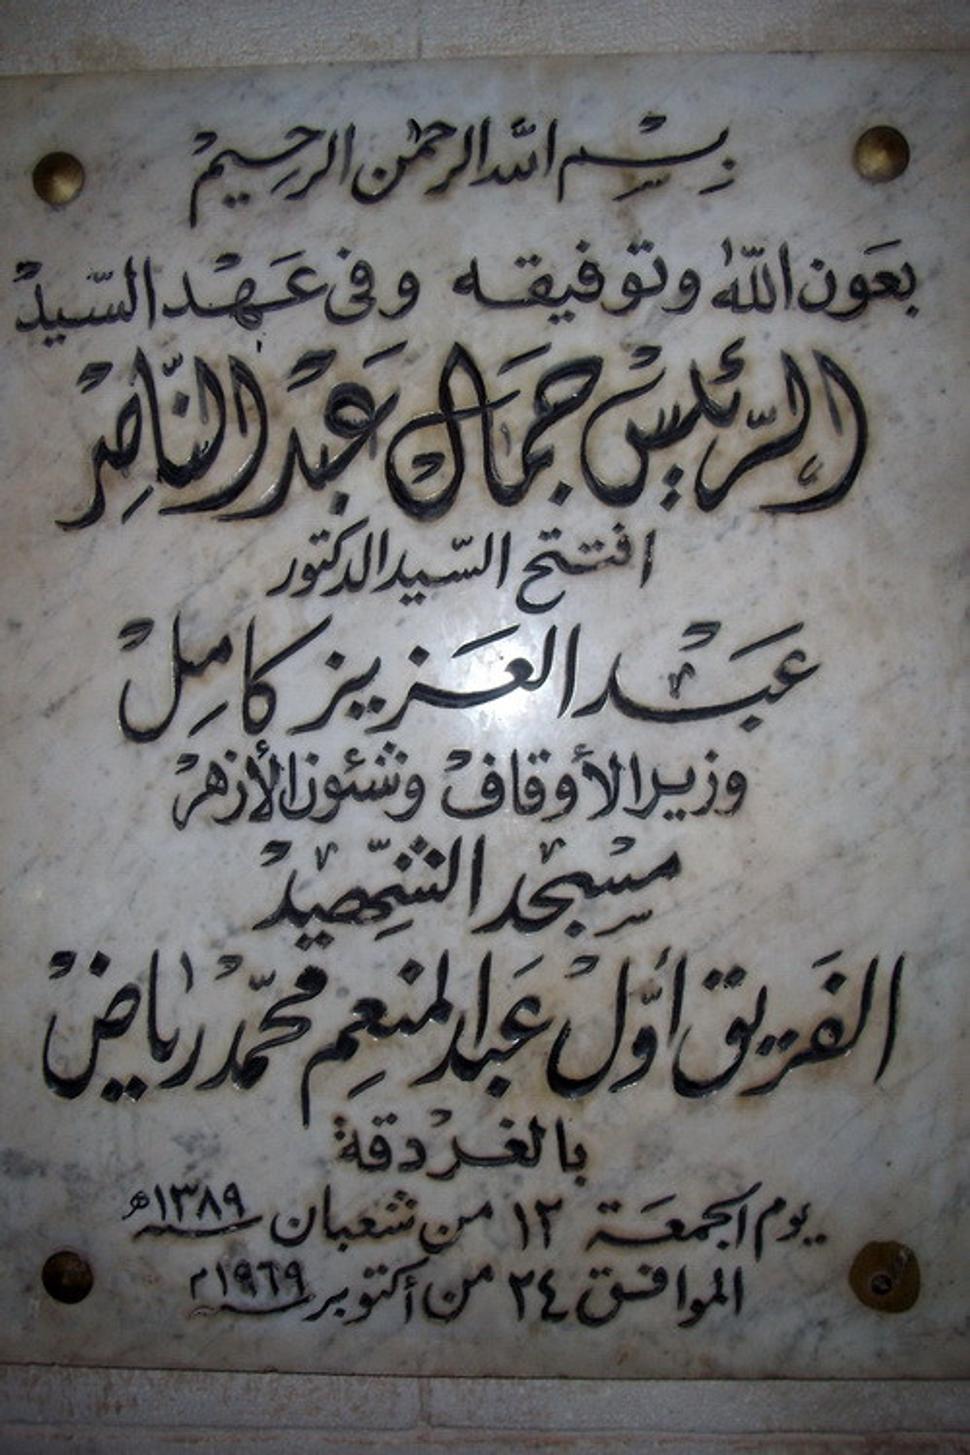 بسم الله الرحمن الرحيم
بعون الله وتوفيقه وفى عهد السيد
الرئيس جمال عبد الناصر
افتتح السيد الدكتور
عبد العزيز كامل
وزير الأوقاف وشئون الأزهر
مسجد الشهيد
الفريق أول عبد المنعم محمد رياض
بالغردقة
يوم الجمعة ١٢ من شعبان سنة ١٣٨٩ هـ
الموافق ٢٤ من أكتوبر سنة ١٩٦٩ م